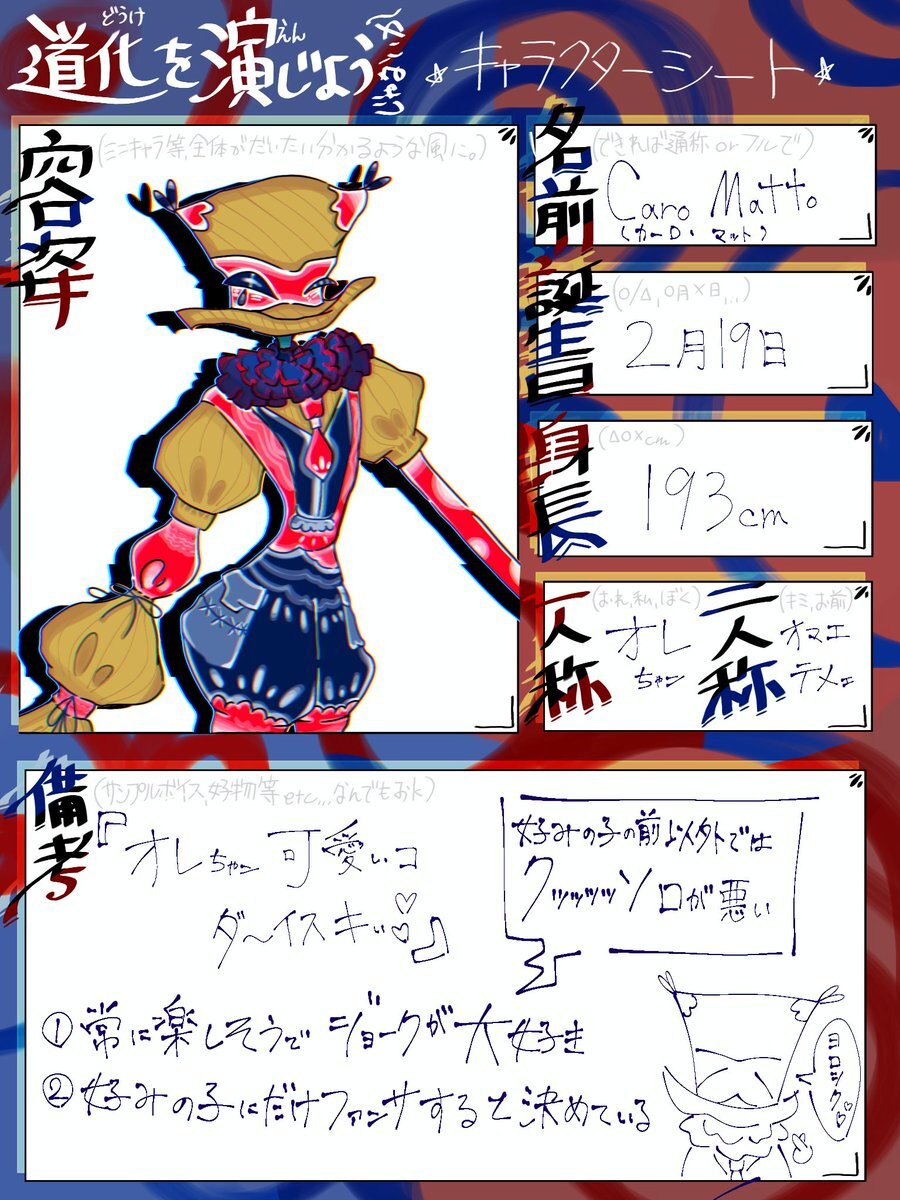 どうけ えん
道化を演じよう
☆キャラクターシート☆
容姿
(ミニキャラ等、全体がだいたい分かるような風に。)
名前
(できれば通称 or フルで)
Caro Matto
(カーロ・マット)
誕生日
(〇/△,〇月×日...)
2月19日
身長
(△〇×cm)
193cm
一人称
(おれ,私,ぼく)
オレ
ちゃン
二人称
(キミ,お前)
オマエ
テメェ
備考
(サンプルボイス,好物等etc...なんでもおk)
『オレちゃン 可愛いコ
ダ〜イスキぃ♡♡』
好みの子の前以外では
クッッッッソ口が悪い
①常に楽しそうで ジョークが大好き
②好みの子にだけファンサすると決めている
ヨロシク♡♡